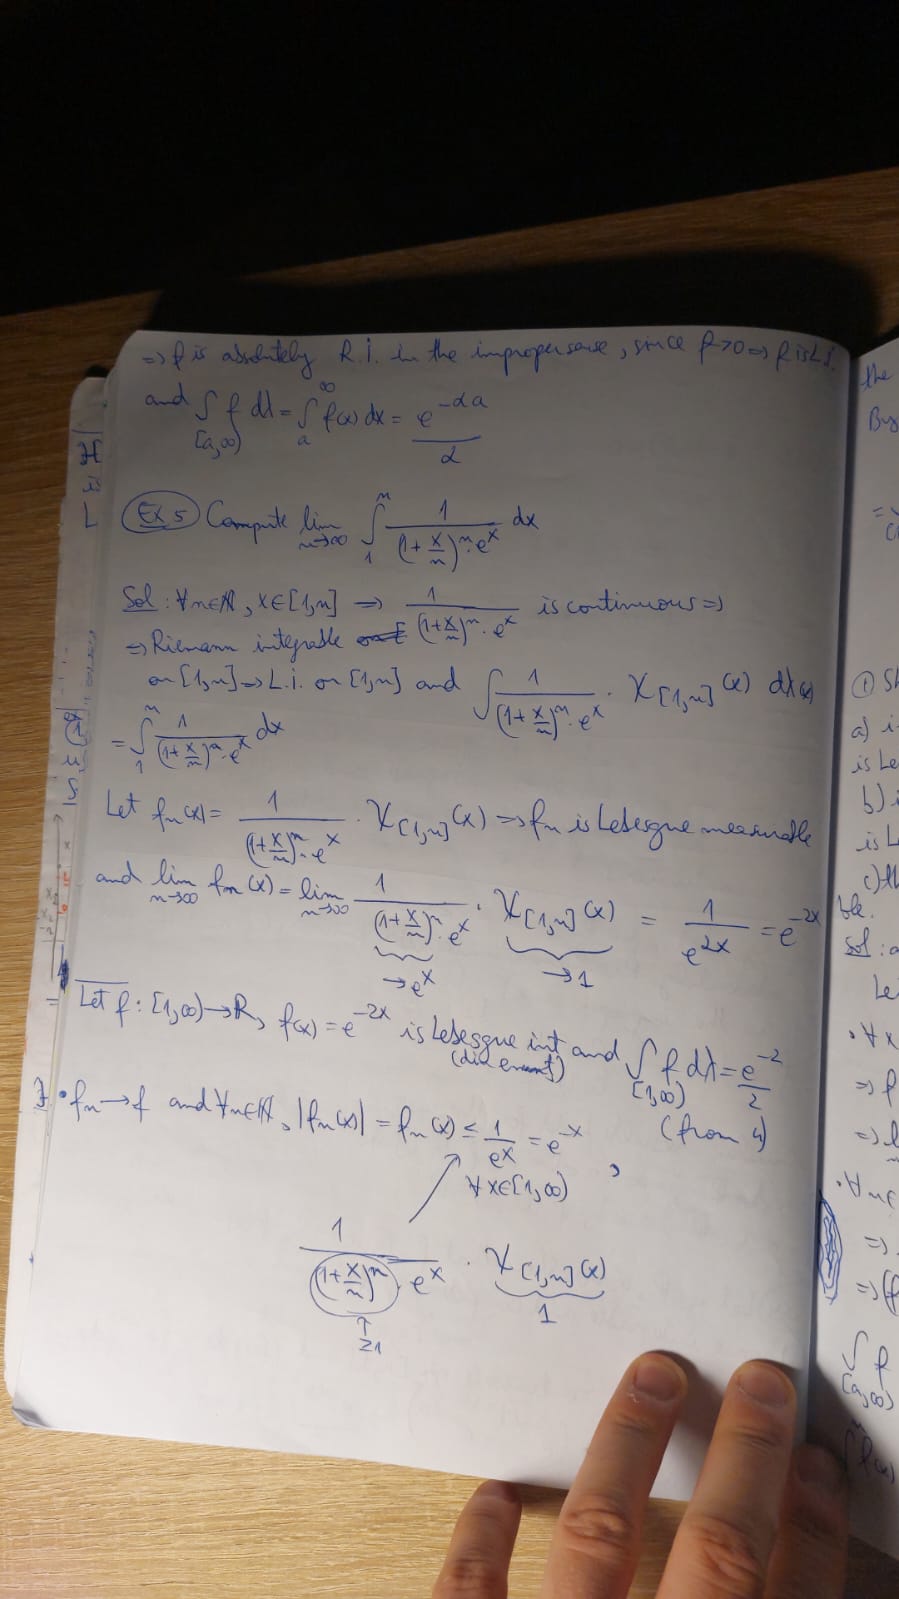 => f is absolutely R.i. in the improper sense, since f>0 => f is L.i.
and ∫_{[a,∞)} f dλ = ∫_a^∞ f(x) dx = e^{-αa}/α
Ex 5 Compute lim_{n→∞} ∫_1^n 1/((1+x/n)^n · e^x) dx
Sol: ∀n∈ℕ, x∈[1,n] => 1/((1+x/n)^n · e^x) is continuous =>
=> Riemann integrable
on [1,n] => L.i. on [1,n] and ∫ 1/((1+x/n)^n · e^x) · χ_{[1,n]}(x) dλ(x)
= ∫_1^n 1/((1+x/n)^n · e^x) dx
Let f_n(x) = 1/((1+x/n)^n · e^x) · χ_{[1,n]}(x) => f_n is Lebesgue measurable
and lim_{n→∞} f_n(x) = lim_{n→∞} 1/((1+x/n)^n · e^x) · χ_{[1,n]}(x) = 1/e^{2x} = e^{-2x}
→e^x →1
Let f: [1,∞) → R, f(x) = e^{-2x} is Lebesgue int and ∫_{[1,∞)} f dλ = e^{-2}/2
(from 4)
• f_n → f and ∀n∈ℕ, |f_n(x)| = f_n(x) ≤ 1/e^x = e^{-x},
∀x∈[1,∞)
1/((1+x/n)^n · e^x) · χ_{[1,n]}(x)
≥1 1
the
① Sh
a) i
is Le
b) i
is L
c) th
ble.
Sol: a
Le
• ∀x
=> f
• ∀n∈
=>
=> (f
∫ f
[a,∞)